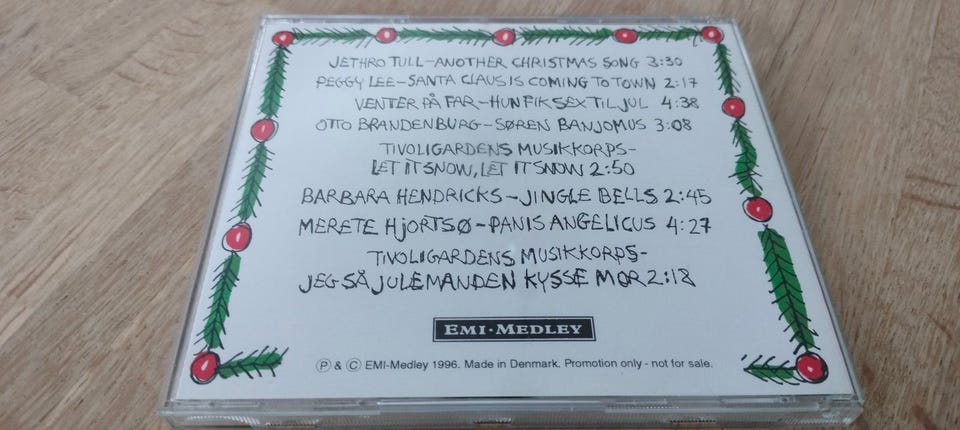 JETHRO TULL-ANOTHER CHRISTMAS SONG 3:30
PEGGY LEE-SANTA CLAUS IS COMING TO TOWN 2:17
VENTER PÅ FAR-HUN FIK SEX TIL JUL 4:38
OTTO BRANDENBURG-SØREN BANJOMUS 3:08
TIVOLIGARDENS MUSIKKORPS-
LET IT SNOW, LET IT SNOW 2:50
BARBARA HENDRICKS-JINGLE BELLS 2:45
MERETE HJORTSØ-PANIS ANGELICUS 4:27
TIVOLIGARDENS MUSIKKORPS-
JEG SÅ JULEMANDEN KYSSE MOR 2:18
EMI·MEDLEY
Ⓟ & Ⓒ EMI-Medley 1996. Made in Denmark. Promotion only - not for sale.